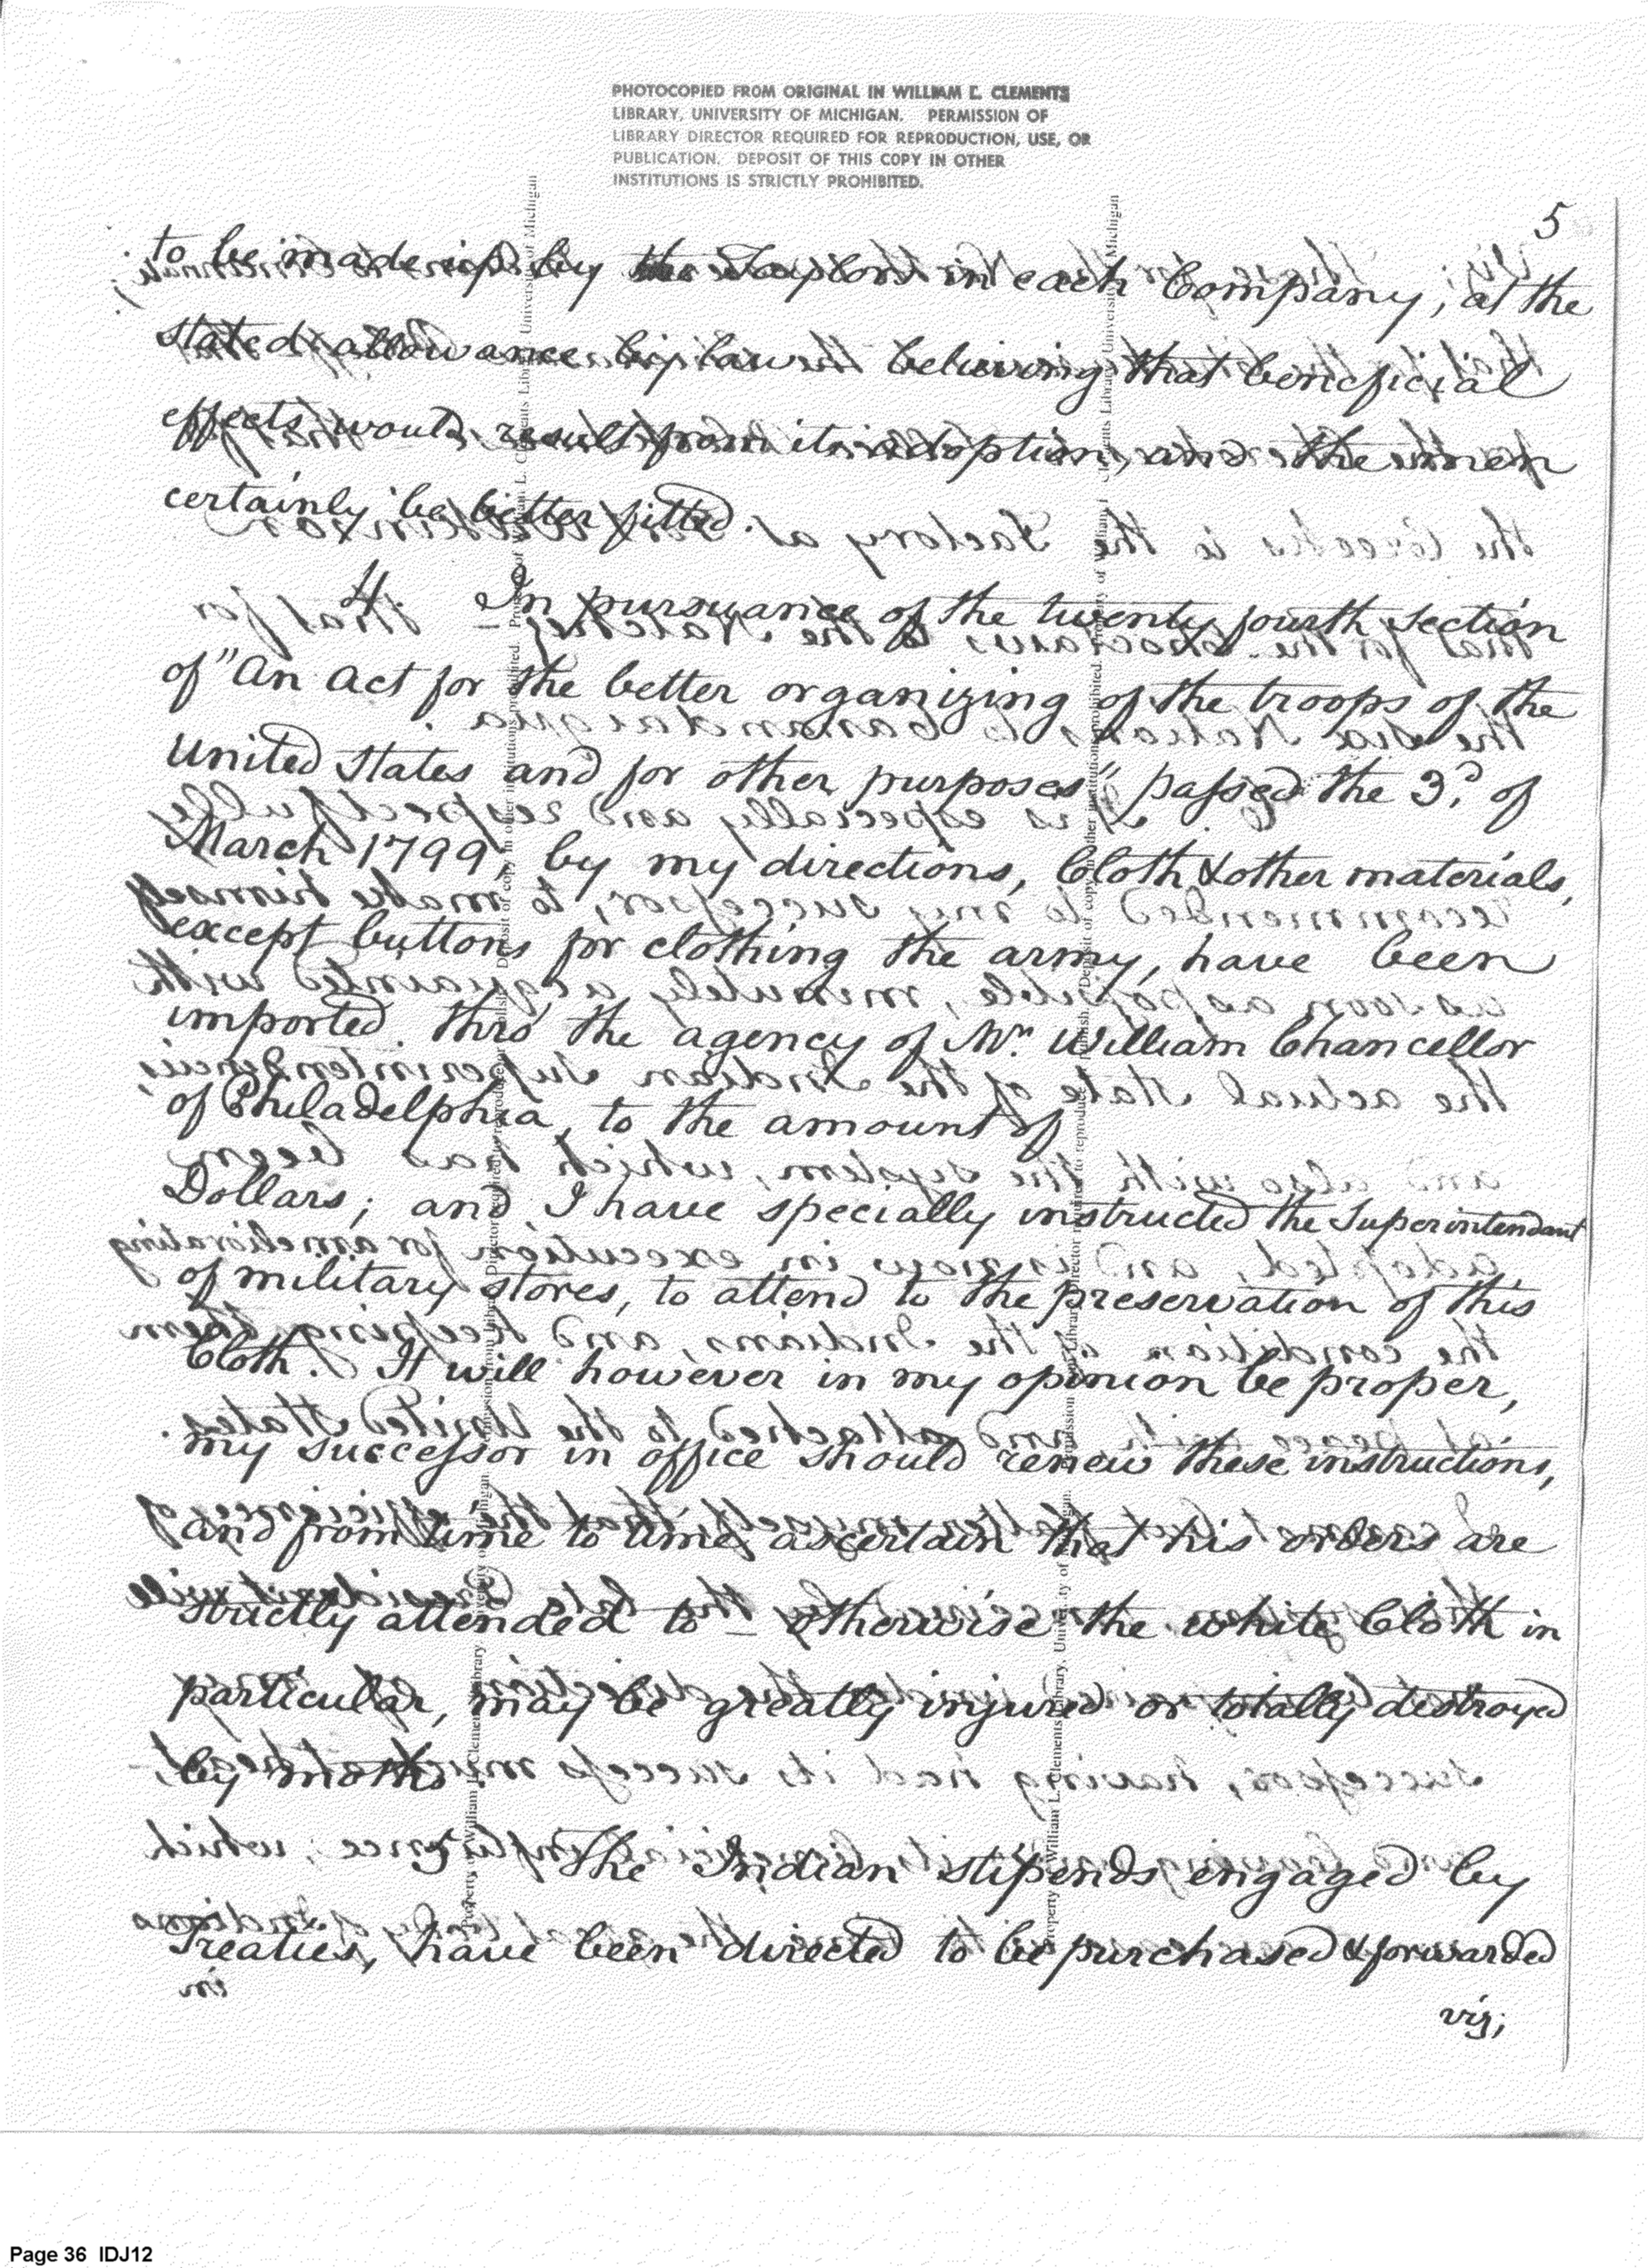 PHOTOCOPIED FROM ORIGINAL IN WILLIAM L. CLEMENTS
LIBRARY, UNIVERSITY OF MICHIGAN. PERMISSION OF
LIBRARY DIRECTOR REQUIRED FOR REPRODUCTION, USE, OR
PUBLICATION. DEPOSIT OF THIS COPY IN OTHER
INSTITUTIONS IS STRICTLY PROHIBITED.
5
to be made up by the Taylors in each Company, at the
stated allowance by law believing that beneficial
effects would result from its adoption, and the men
certainly be better fitted.
4. In pursuance of the twenty fourth section
of "An Act for the better organizing of the troops of the
United States and for other purposes" passed the 3d. of
March 1799, by my directions, Cloth & other materials,
except buttons for clothing the army, have been
imported thro' the agency of Mr. William Chancellor
of Philadelphia, to the amount of
Dollars; and I have specially instructed the Superintendant
of military stores, to attend to the preservation of this
Cloth. It will however in my opinion be proper,
my successor in office should renew these instructions,
and from time to time ascertain that his orders are
strictly attended to – otherwise the white Cloth in
particular, may be greatly injured or totally destroyed
by moths.
5 The Indian stipends engaged by
Treaties, have been directed to be purchased & forwarded
in
viz;
Page 36 IDJ12